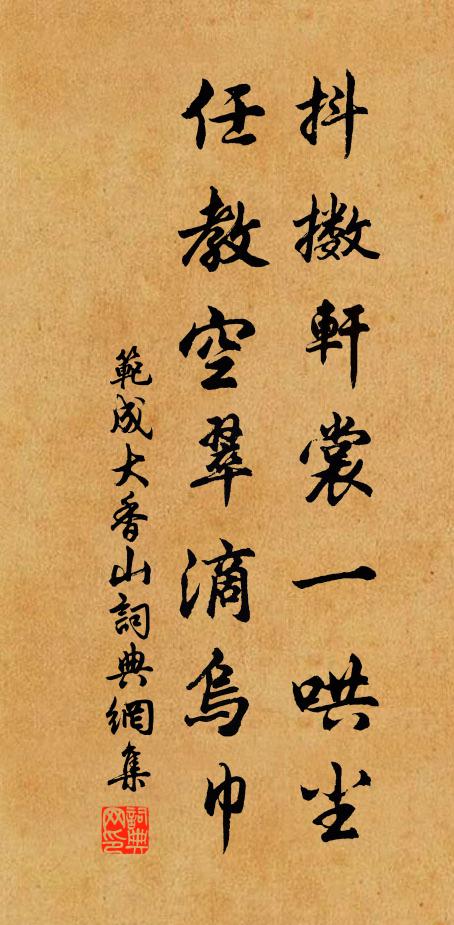 抖擻軒裳一哄尘
任教空翠滴烏巾
範成大香山詞典網集
詞典网印